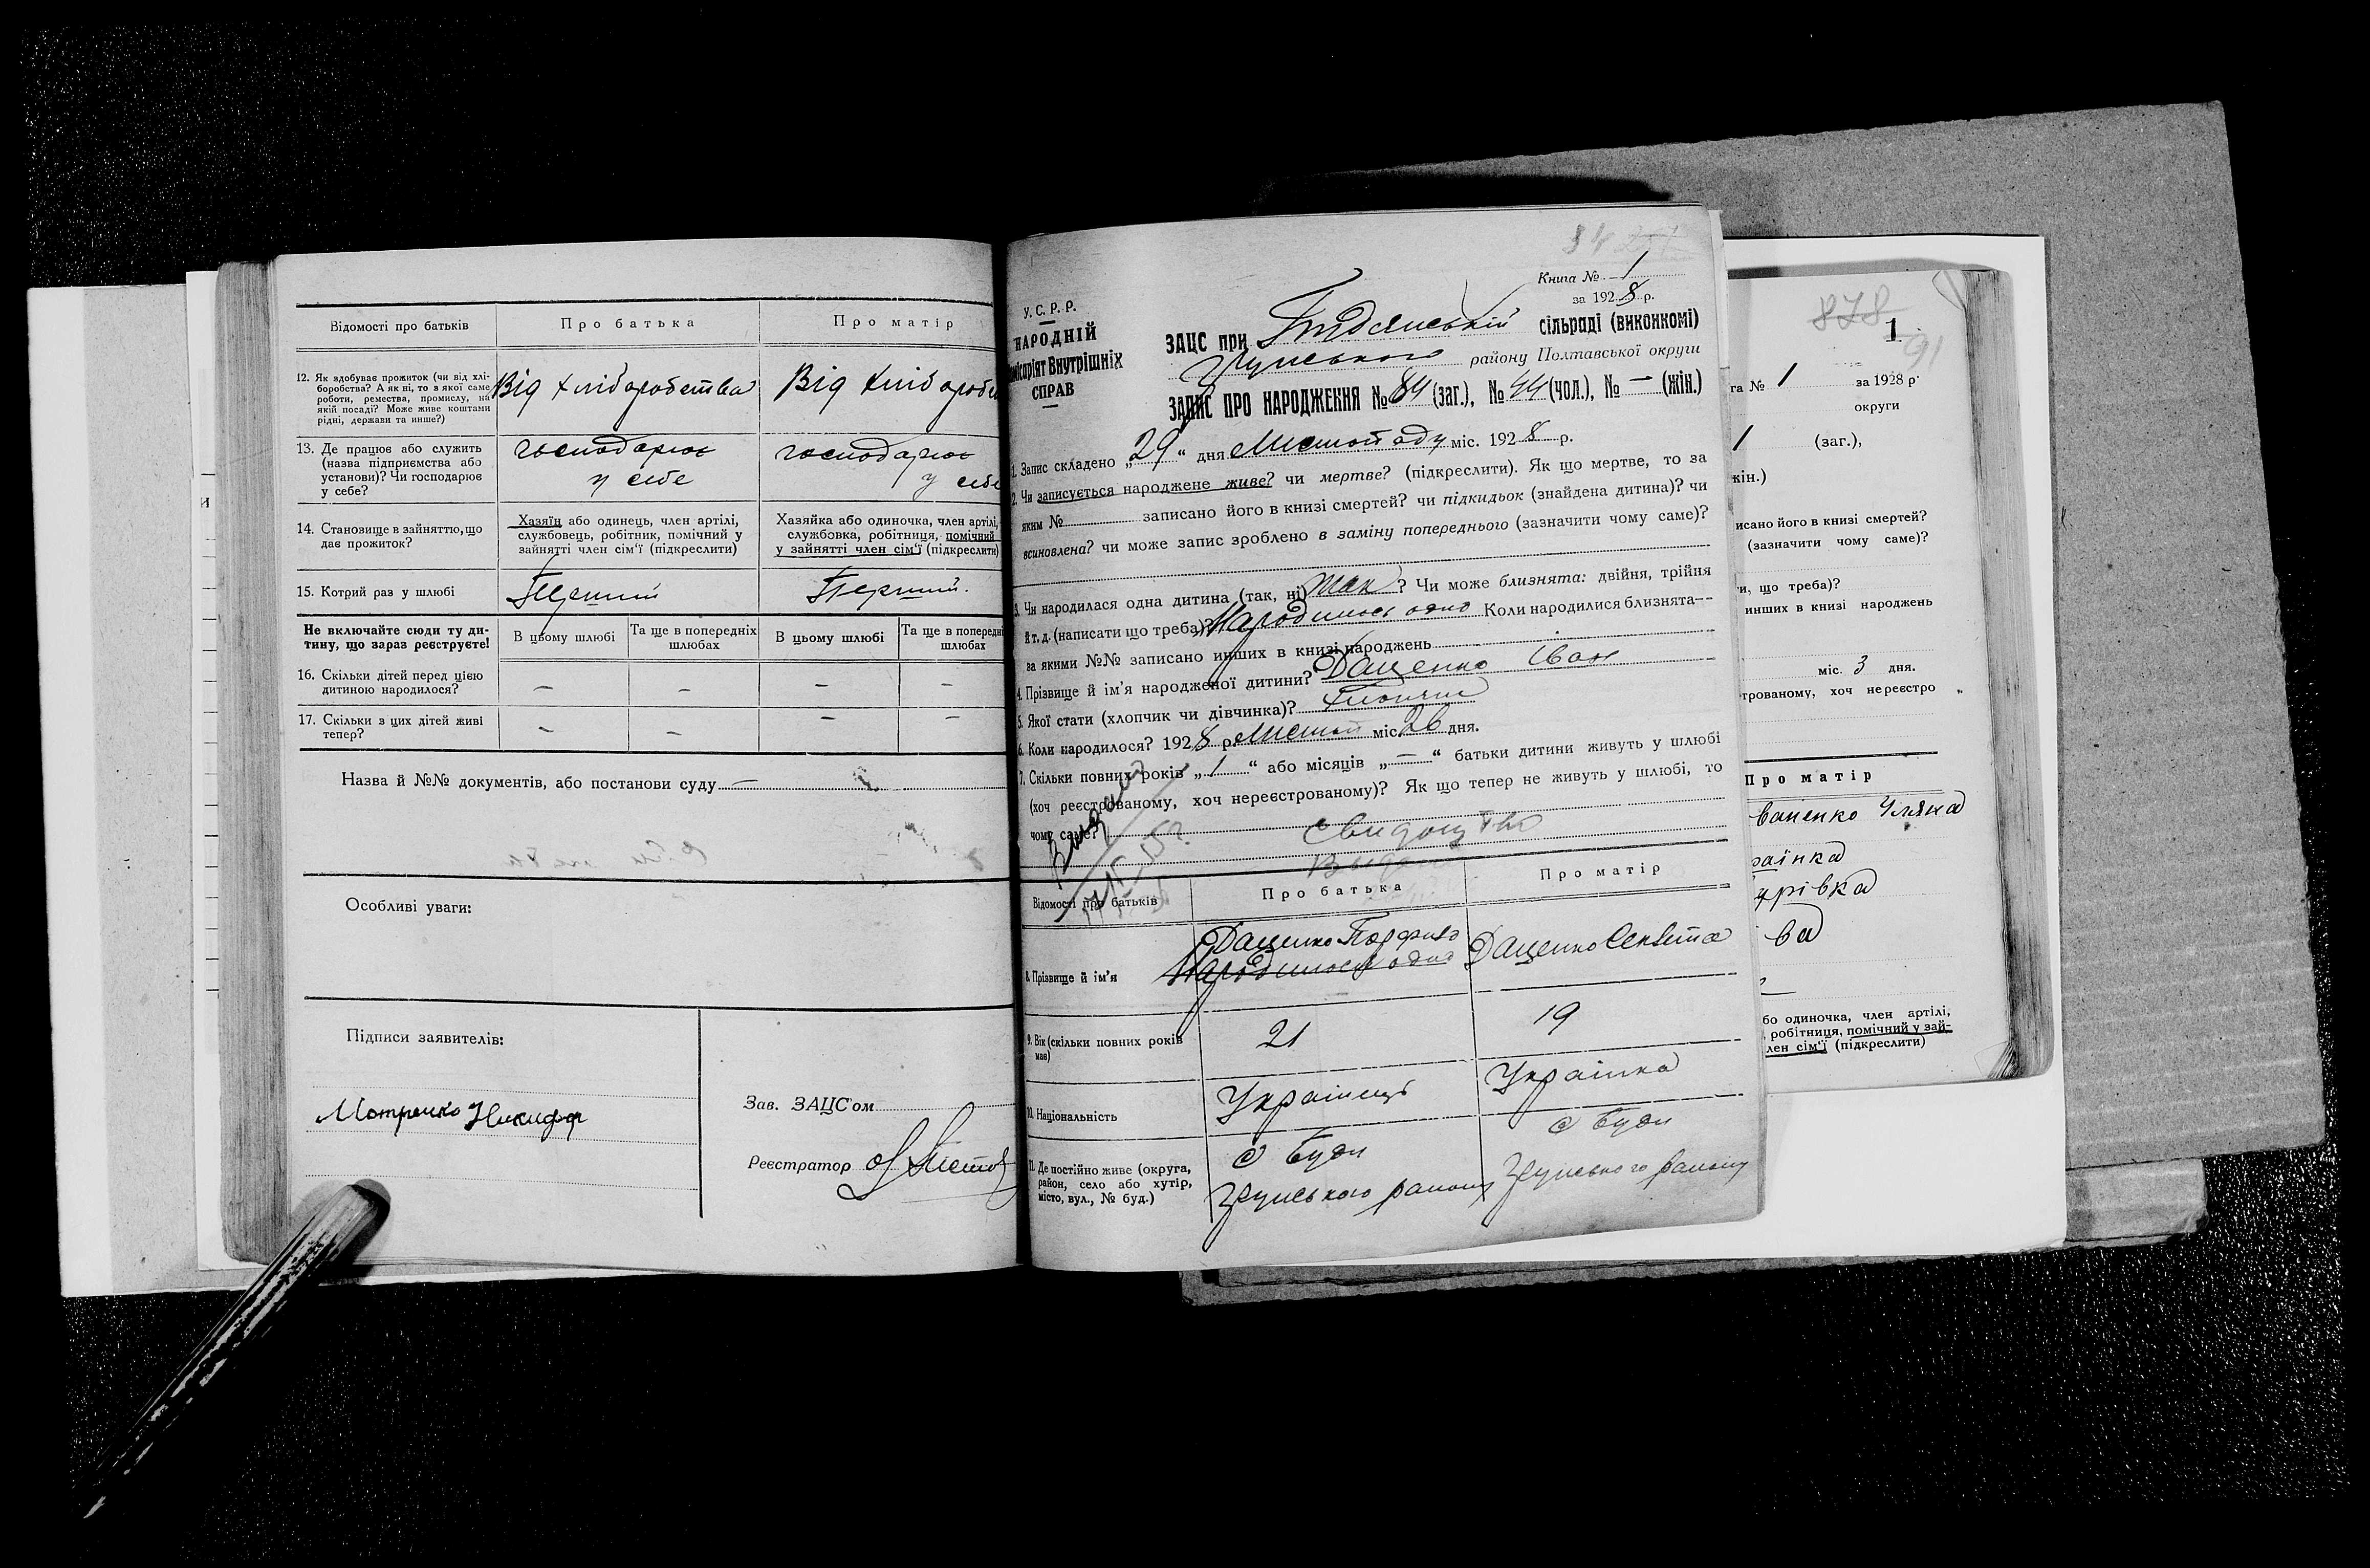 Відомості про батьків
Про батька
Про матір
12. Як здобуває прожиток (чи від хлі-
боробства? А як ні, то з якої саме
роботи, ремества, промислу, на
якій посаді? Може живе коштами
рідні, держави та инше?)
Від хліборобства
Від хлібороб
13. Де працює або служить
(назва підприємства або
установи)? Чи господарює
у себе?
господарює
у себе
господарює
у себе
14. Становище в зайняттю, що
дає прожиток?
Хазяїн або одинець, член артілі,
службовець, робітник, помічний у
зайнятті член сім'ї (підкреслити)
Хазяйка або одиночка, член артілі,
службовка, робітниця, помічний
у зайнятті член сім'ї (підкреслити)
15. Котрий раз у шлюбі
Перший
Перший.
Не включайте сюди ту ди-
тину, що зараз реєструєте!
В цьому шлюбі
Та ще в попередніх
шлюбах
В цьому шлюбі
Та ще в попередні
шлюбах
16. Скільки дітей перед цією
дитиною народилося?
— — — —
17. Скільки з цих дітей живі
тепер?
— — — —
Назва й №№ документів, або постанови суду —
Особливі уваги:
Підписи заявителів:
Никифор
Зав. ЗАЦС'ом
Реєстратор
84
Книга № 1
за 1928 р.
У. С. Р. Р.
НАРОДНІЙ
місаріят Внутрішніх
СПРАВ
ЗАЦС при сільраді (виконкомі)
району Полтавської округи
ЗАПИС ПРО НАРОДЖЕННЯ № 84 (заг.), № 44 (чол.), № — (жін.)
1. Запис складено „29“ дня Листопаду міс. 1928 р.
2. Чи записується народжене живе? чи мертве? (підкреслити). Як що мертве, то за
яким № записано його в книзі смертей? чи підкидьок (знайдена дитина)? чи
всиновлена? чи може запис зроблено в заміну попереднього (зазначити чому саме)?
3. Чи народилася одна дитина (так, ні) так? Чи може близнята: двійня, трійня
й т. д. (написати що треба)? Народилось одно Коли народилися близнята—
за якими №№ записано инших в книзі народжень
4. Прізвище й ім'я народженої дитини? Даценко Іван
5. Якої стати (хлопчик чи дівчинка)?
6. Коли народилося? 1928 р. Листоп міс. 26 дня.
7. Скільки повних років „1“ або місяців „—“ батьки дитини живуть у шлюбі
(хоч реєстрованому, хоч нереєстрованому)? Як що тепер не живуть у шлюбі, то
чому саме?
Відомості про батьків
Про батька
Про матір
8. Прізвище й ім'я
Даценко
Народилося одно
Даценко
9. Вік (скільки повних років
має)
21
19
10. Національність
Українець
Українка
11. Де постійно живе (округа,
район, село або хутір,
місто, вул., № буд.)
с Буди
Зіньського району
с Буди
Зіньського району
878
1
91
га № 1 за 1928 р.
округи
1 (заг.),
жін.)
исано його в книзі смертей?
(зазначити чому саме)?
и, що треба)?
инших в книзі народжень
міс. 3 дня.
трованому, хоч нереєстро
Про матір
ваненко Уляна
раїнка
бо одиночка, член артілі,
робітниця, помічний у зай-
лен сім'ї (підкреслити)